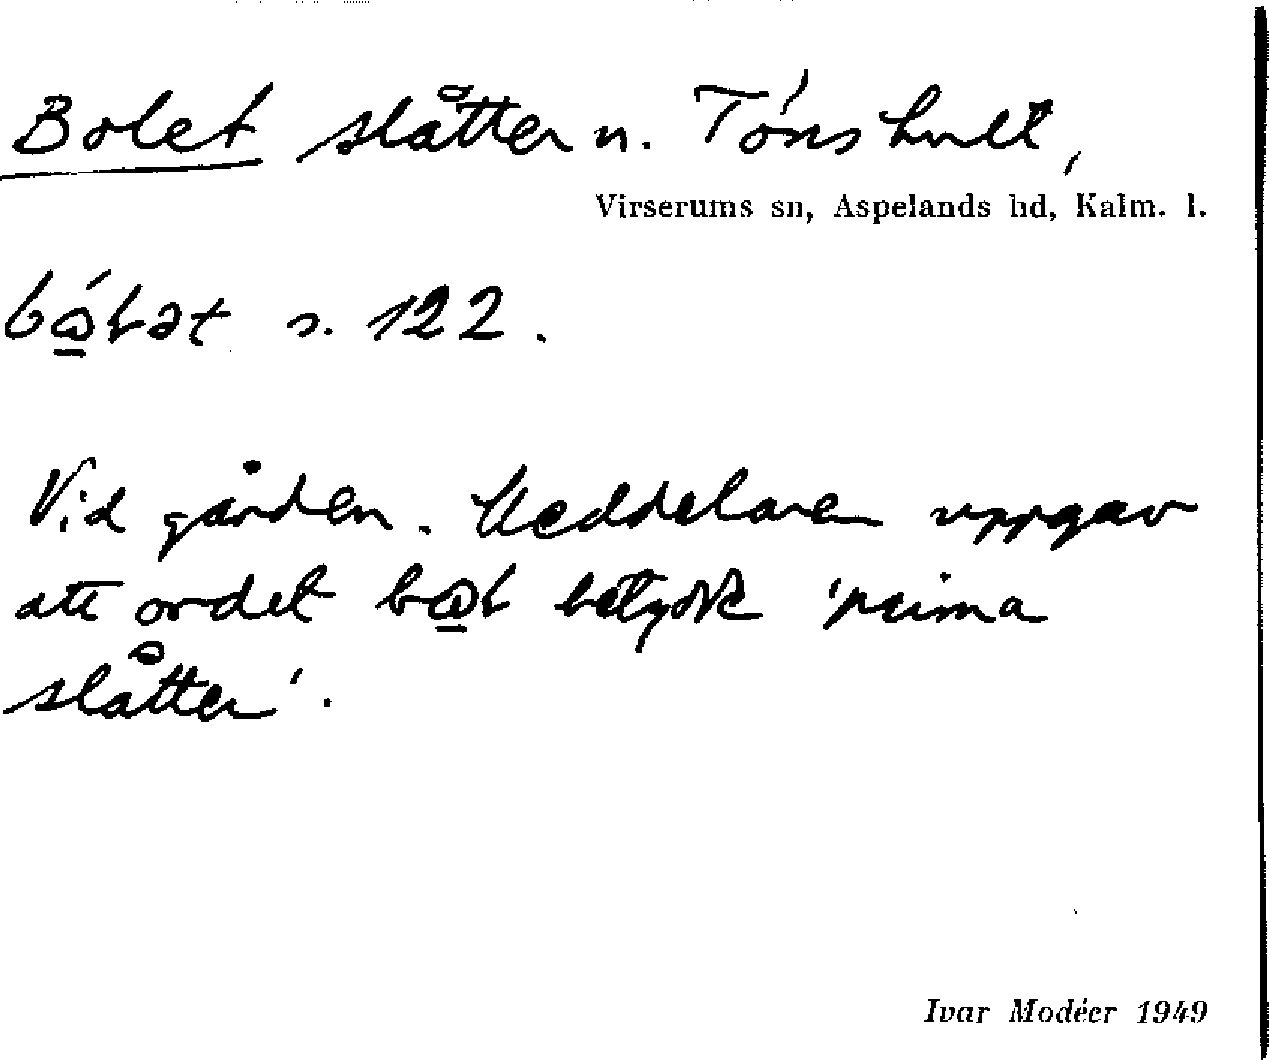 Bolet slåtter n. Tónshult,
Virserums sn, Aspelands hd, Kalm. l.
s. 122.
Vid gården. Meddelaren uppgav
att ordet betydde 'prima
slåtter'.
Ivar Modéer 1949